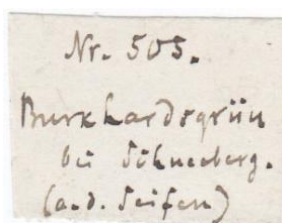 Nr. 505.
Burkhardsgrün
bei Schneeberg.
(a. d. Seifen)